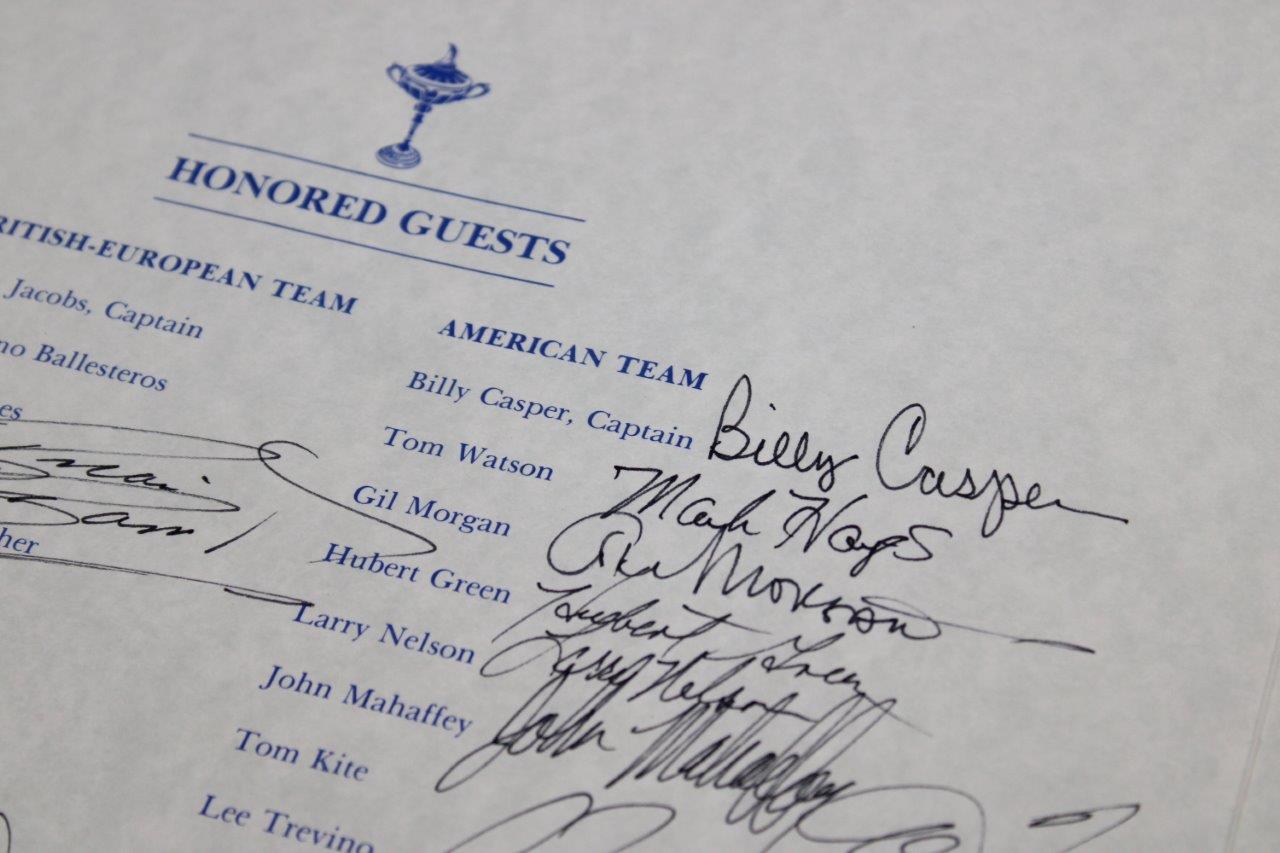 HONORED GUESTS
RITISH-EUROPEAN TEAM
Jacobs, Captain
no Ballesteros
es
her
AMERICAN TEAM
Billy Casper, Captain Billy Casper
Tom Watson Mark Hayes
Gil Morgan Morgan
Hubert Green Hubert Green
Larry Nelson Larry Nelson
John Mahaffey John Mahaffey
Tom Kite
Lee Trevino